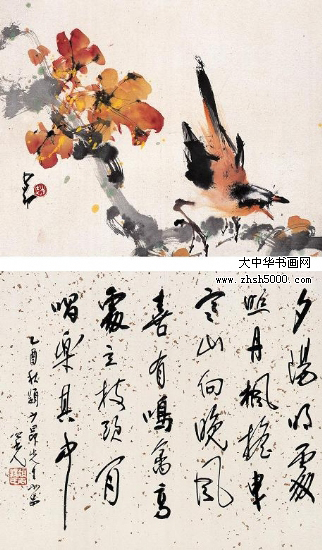 大中华书画网
www.zhsh5000.com
夕陽明
照丹楓搖曳
寒山向晚風
喜有鳴禽高
處立枝頭
唱樂其中
乙酉秋題少昂先生小品